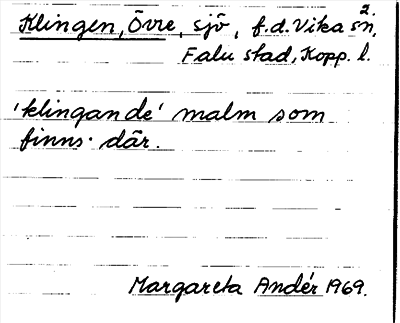 2.
Klingen, Övre, sjö, f.d. Vika sn,
Falu stad, Kopp. l.
'klingande' malm som
finns där.
Margareta Andér 1969.